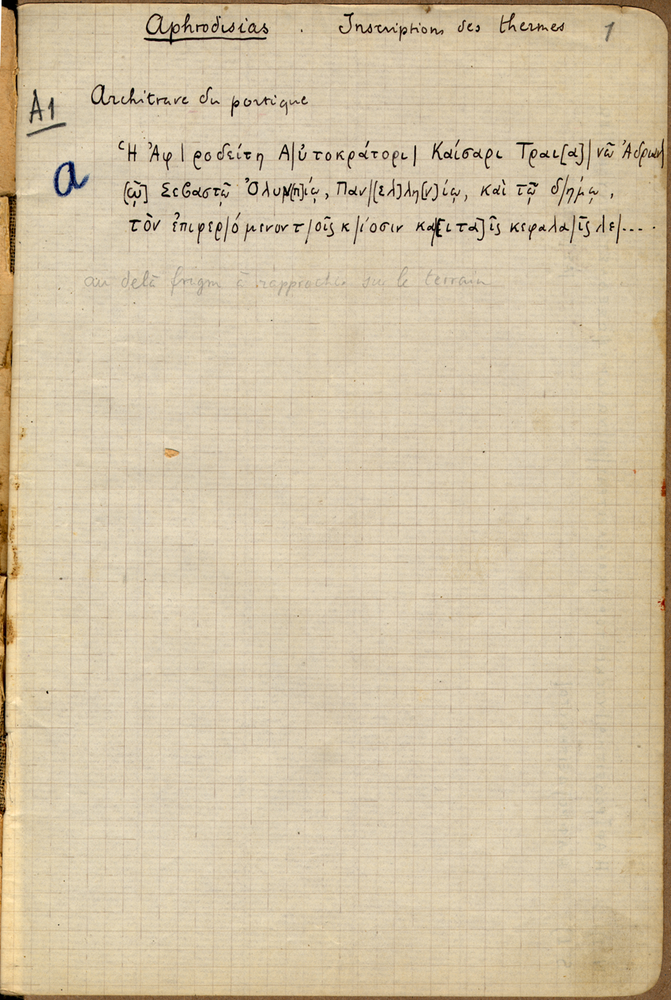 Aphrodisias . Inscriptions des thermes 1
A1 Architrave du portique
a Ἡ Ἀφ|ροδείτη Α|ὐτοκράτορι| Καίσαρι Τραι[α]|νῶ Ἁδριαν|
[ῷ] Σεβαστῷ Ὀλυμ[π]ίῳ, Παν|[ελ]λη[ν]ίῳ, καὶ τῷ δ|ήμῳ,
τὸν ἐπιφερ|όμενον τ|οῖς κ|ίοσιν κα[ὶ τα]ῖς κεφαλα|ῖς λε|....
au delà fragm à rapprocher sur le terrain